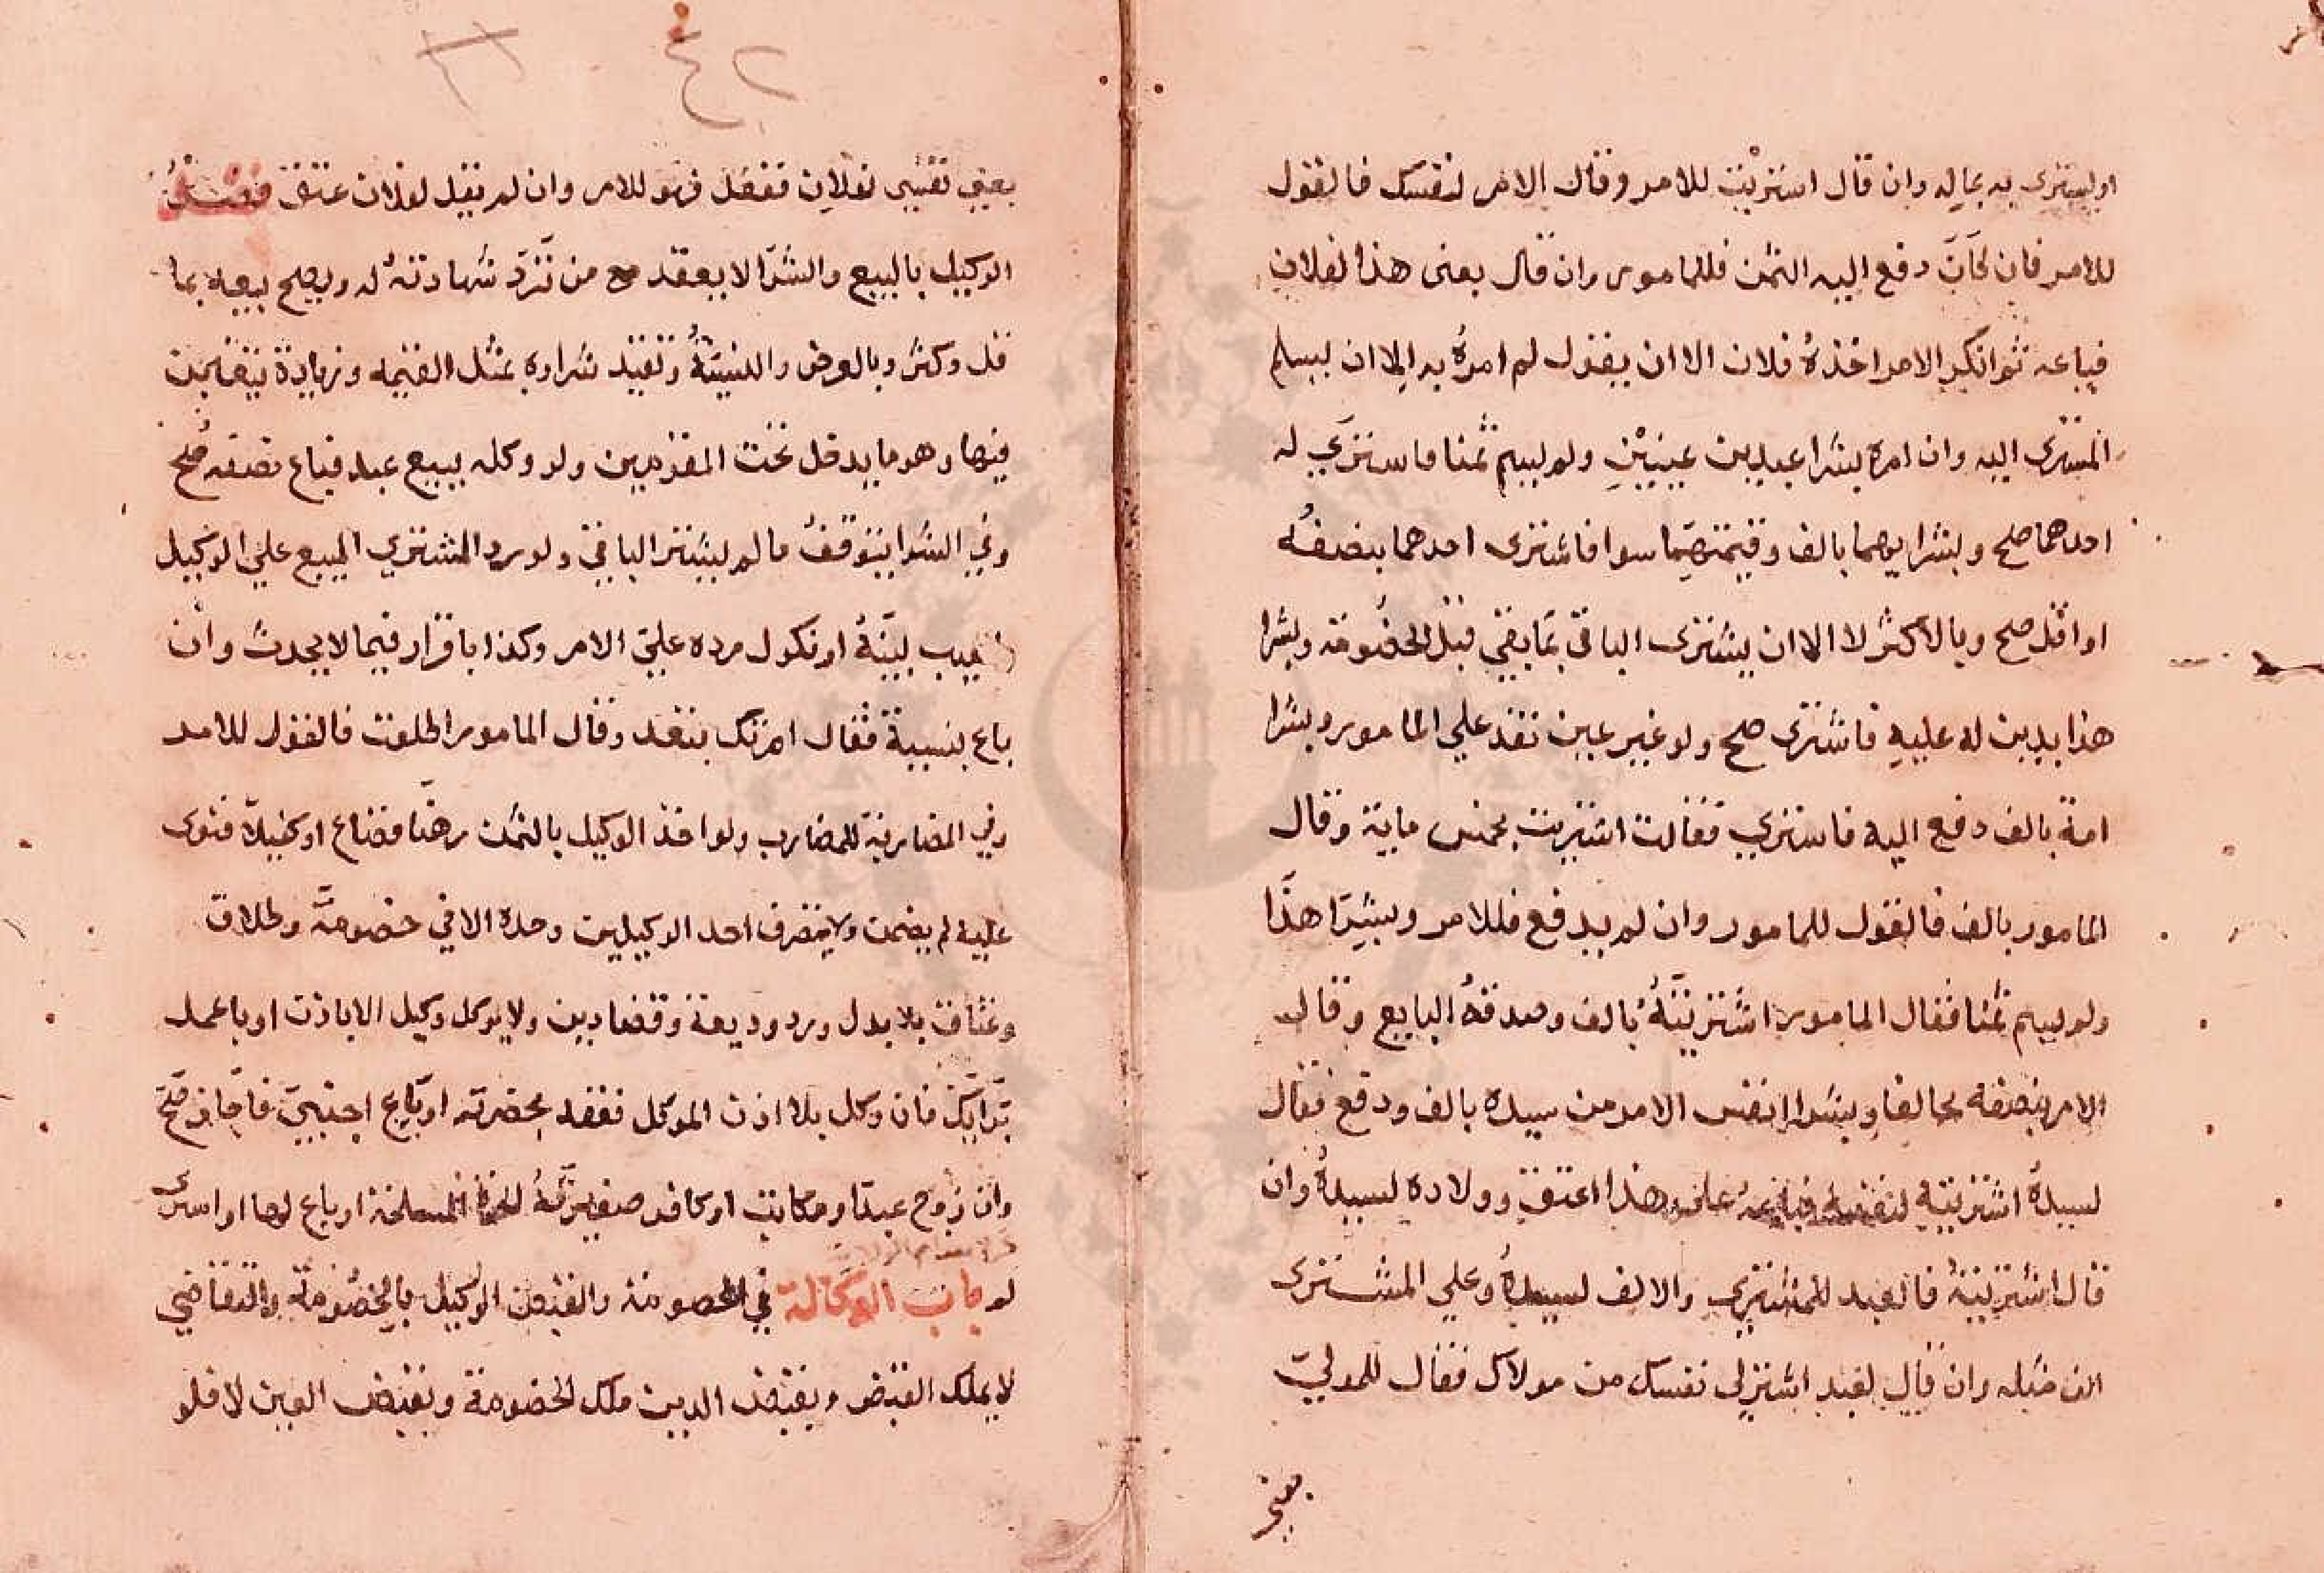 او يشتري به بماله وان قال اشتريت للامر وقال الامر لنفسك فالقول
للامر فان كان دفع اليه الثمن فللمامور وان قال بعنى هذا لفلان
فباعه ثم انكر الامر اخذه فلان الا ان يقول لم امره به الا ان يسلم
المشترى اليه وان امره بشرا عبدين عينين ولم يسم ثمنا فاشترى له
احدهما صح وبشرايهما بالف وقيمتهما سوا فاشترى احدهما بنصفه
او اقل صح وبالاكثر لا الا ان يشترى الباقى بما بقي قبل الخصومة وبشرا
هذا بدين له عليه فاشترى صح ولو غير عين نفذ علي المامور وبشرا
امة بالف دفع اليه فاشتري فقالت اشتريت بخمس ماية وقال
المامور بالف فالقول للمامور وان لم يدفع فللامر وبشرا هذا
ولم يسم ثمنا فقال المامور اشتريته بالف وصدقه البايع وقال
الامر بنصفه تحالفا وبشرا نفس الامر من سيده بالف ودفع فقال
لسيده اشتريته لنفسه فباعه على هذا اعتق وولاده لسيده وان
قال اشتريته فالعبد للمشتري والالف لسيده وعلي المشترى
الف مثله وان قال لعبد اشتر لى نفسك من مولاك فقال للمولي
بعني
٤٢
بعني نفسى لفلان ففعل فهو للامر وان لم يقل لفلان عتق فصل
الوكيل بالبيع والشرا لا يعقد مع من ترد شهادته له ويصح بيعه بما
قل وكثر وبالعرض والنسيئة وتقيد شراوه بمثل القيمه وزيادة يتغابن
فيها وهو ما يدخل تحت المقومين ولو وكله ببيع عبد فباع نصفه صح
وفي الشرا يتوقف ما لم يشتر الباقي ولو رد المشتري المبيع علي الوكيل
بعيب ببينة او نكول رده علي الامر وكذا باقرار فيما لا يحدث وان
باع بنسيية فقال امرتك بنقد وقال المامور اطلقت فالقول للامر
وفي المضاربة للمضارب ولو اخذ الوكيل بالثمن رهنا فضاع او كفيلا فتوى
عليه لم يضمن ولا يتصرف احد الوكيلين وحده الا في خصومة وطلاق
وعتاق بلا بدل ورد وديعة وقضا دين ولا يوكل وكيل الا باذن او باعمل
برايك فان وكل بلا اذن الموكل فعقد بحضرته او باع اجنبي فاجاز صح
وان زوج عبد او مكاتب او كافر صغيرته الحرة المسلمة او باع لها او اشترى
لم باب الوكالة في الخصومة والقبض الوكيل بالخصومة والتقاضي
لا يملك القبض وبقبض الدين ملك الخصومة وبقبض العين لا فلو